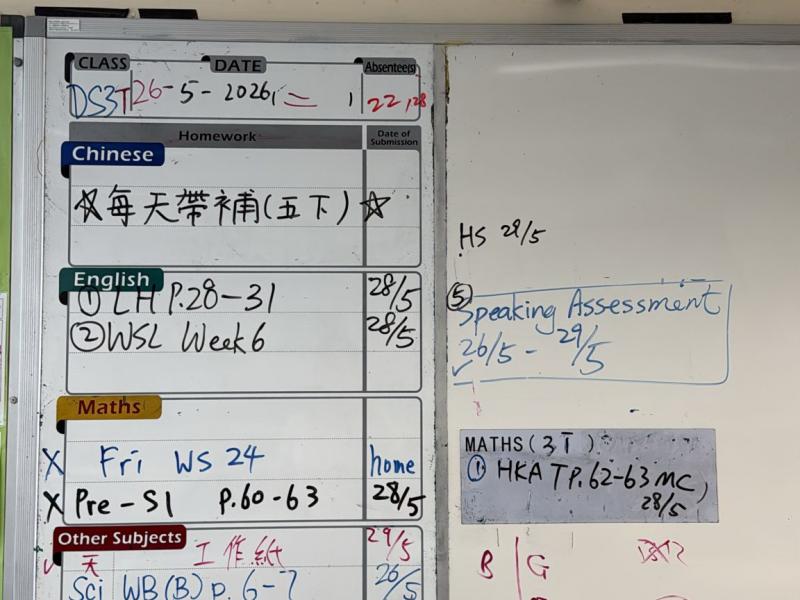 CLASS DATE Absentee(s)
DS3T 26-5-2026, 二 22,28
Homework Date of Submission
Chinese
☆每天帶補(五下)☆
English
① LH P.28-31 28/5
② WSL Week 6 28/5
Maths
X Fri WS 24 home
X Pre-S1 P.60-63 28/5
Other Subjects
天 工作紙 29/5
Sci WB(B) p.6-7 26/5
HS 29/5
⑤
Speaking Assessment
26/5 - 29/5
MATHS(3T)
① HKAT P.62-63 MC)
28/5
B G